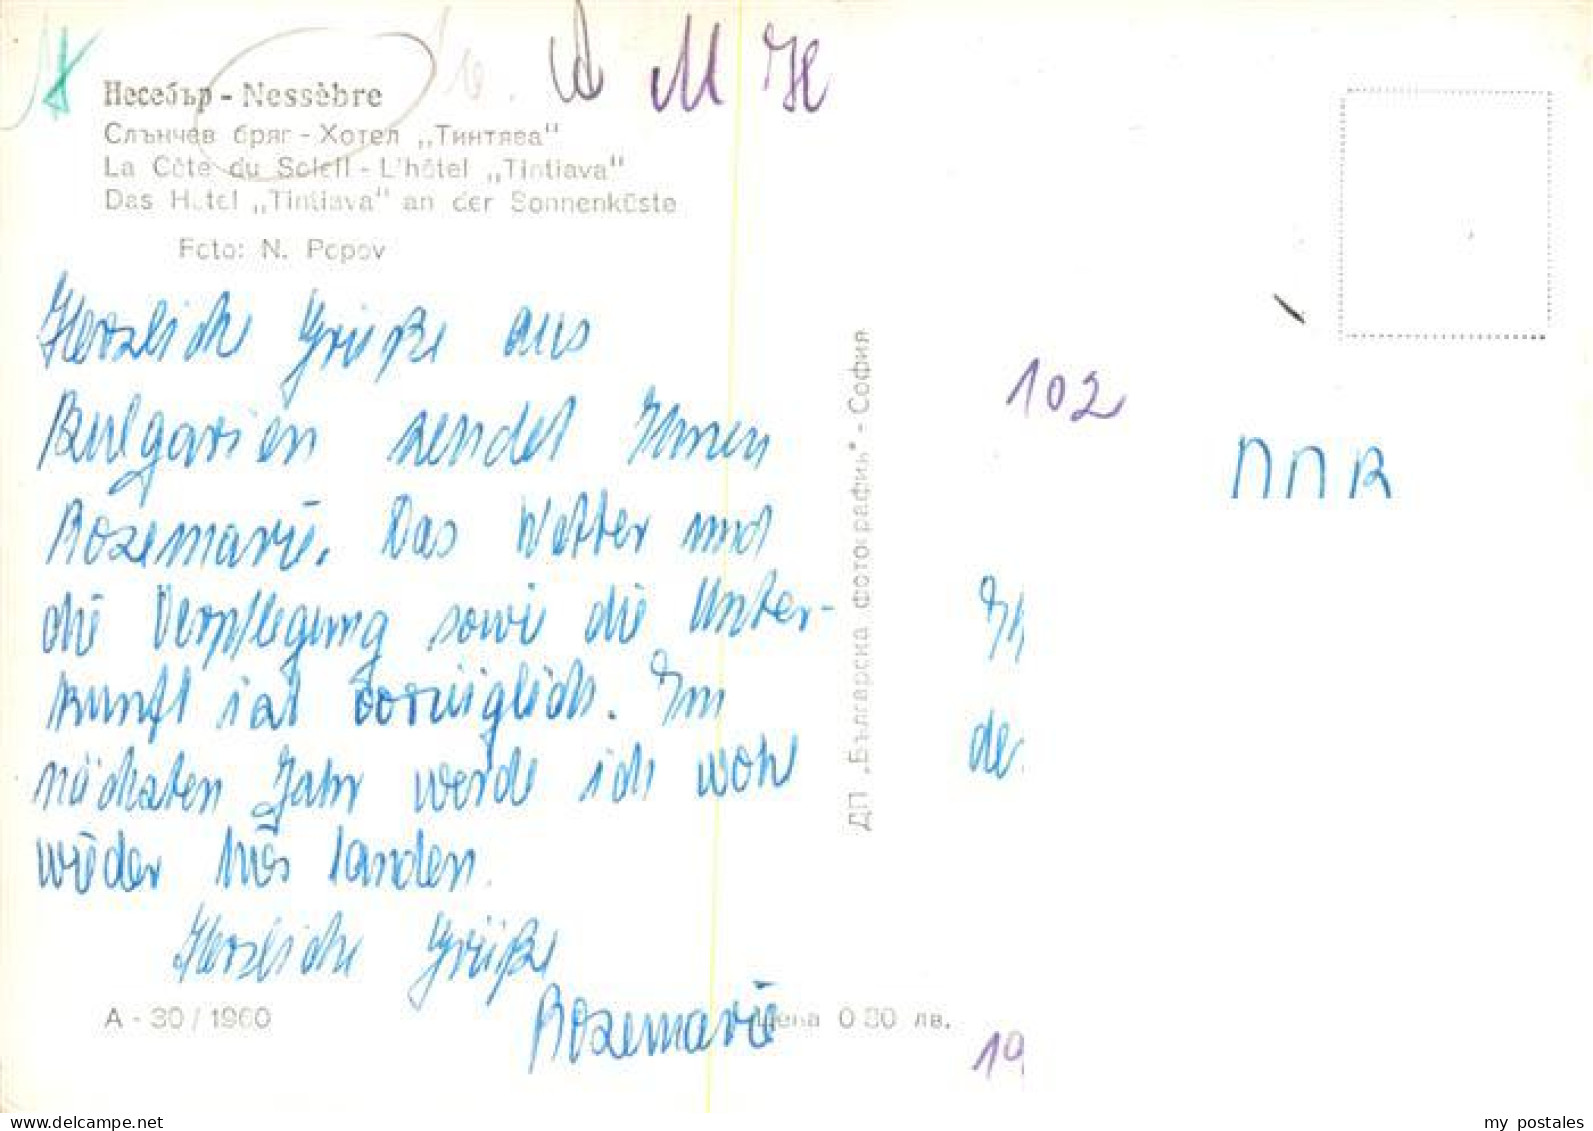 M H
Несебър - Nessèbre
Слънчев бряг - Хотел „Тинтява"
La Côte du Soleil - L'hôtel „Tintiava"
Das Hotel „Tintiava" an der Sonnenküste
Foto: N. Popov
Herzliche Grüße aus
Bulgarien sendet Ihnen
Rosemarie. Das Wetter und
die Verpflegung sowie die Unter-
kunft ist vorzüglich. Im
nächsten Jahr werde ich wohl
wieder hier landen.
Herzliche Grüße
Rosemarie
А - 30 / 1960
Цена 0 80 лв.
ДП „Българска фотография" - София
102
DDR
de
19
my postales
delcampe.net